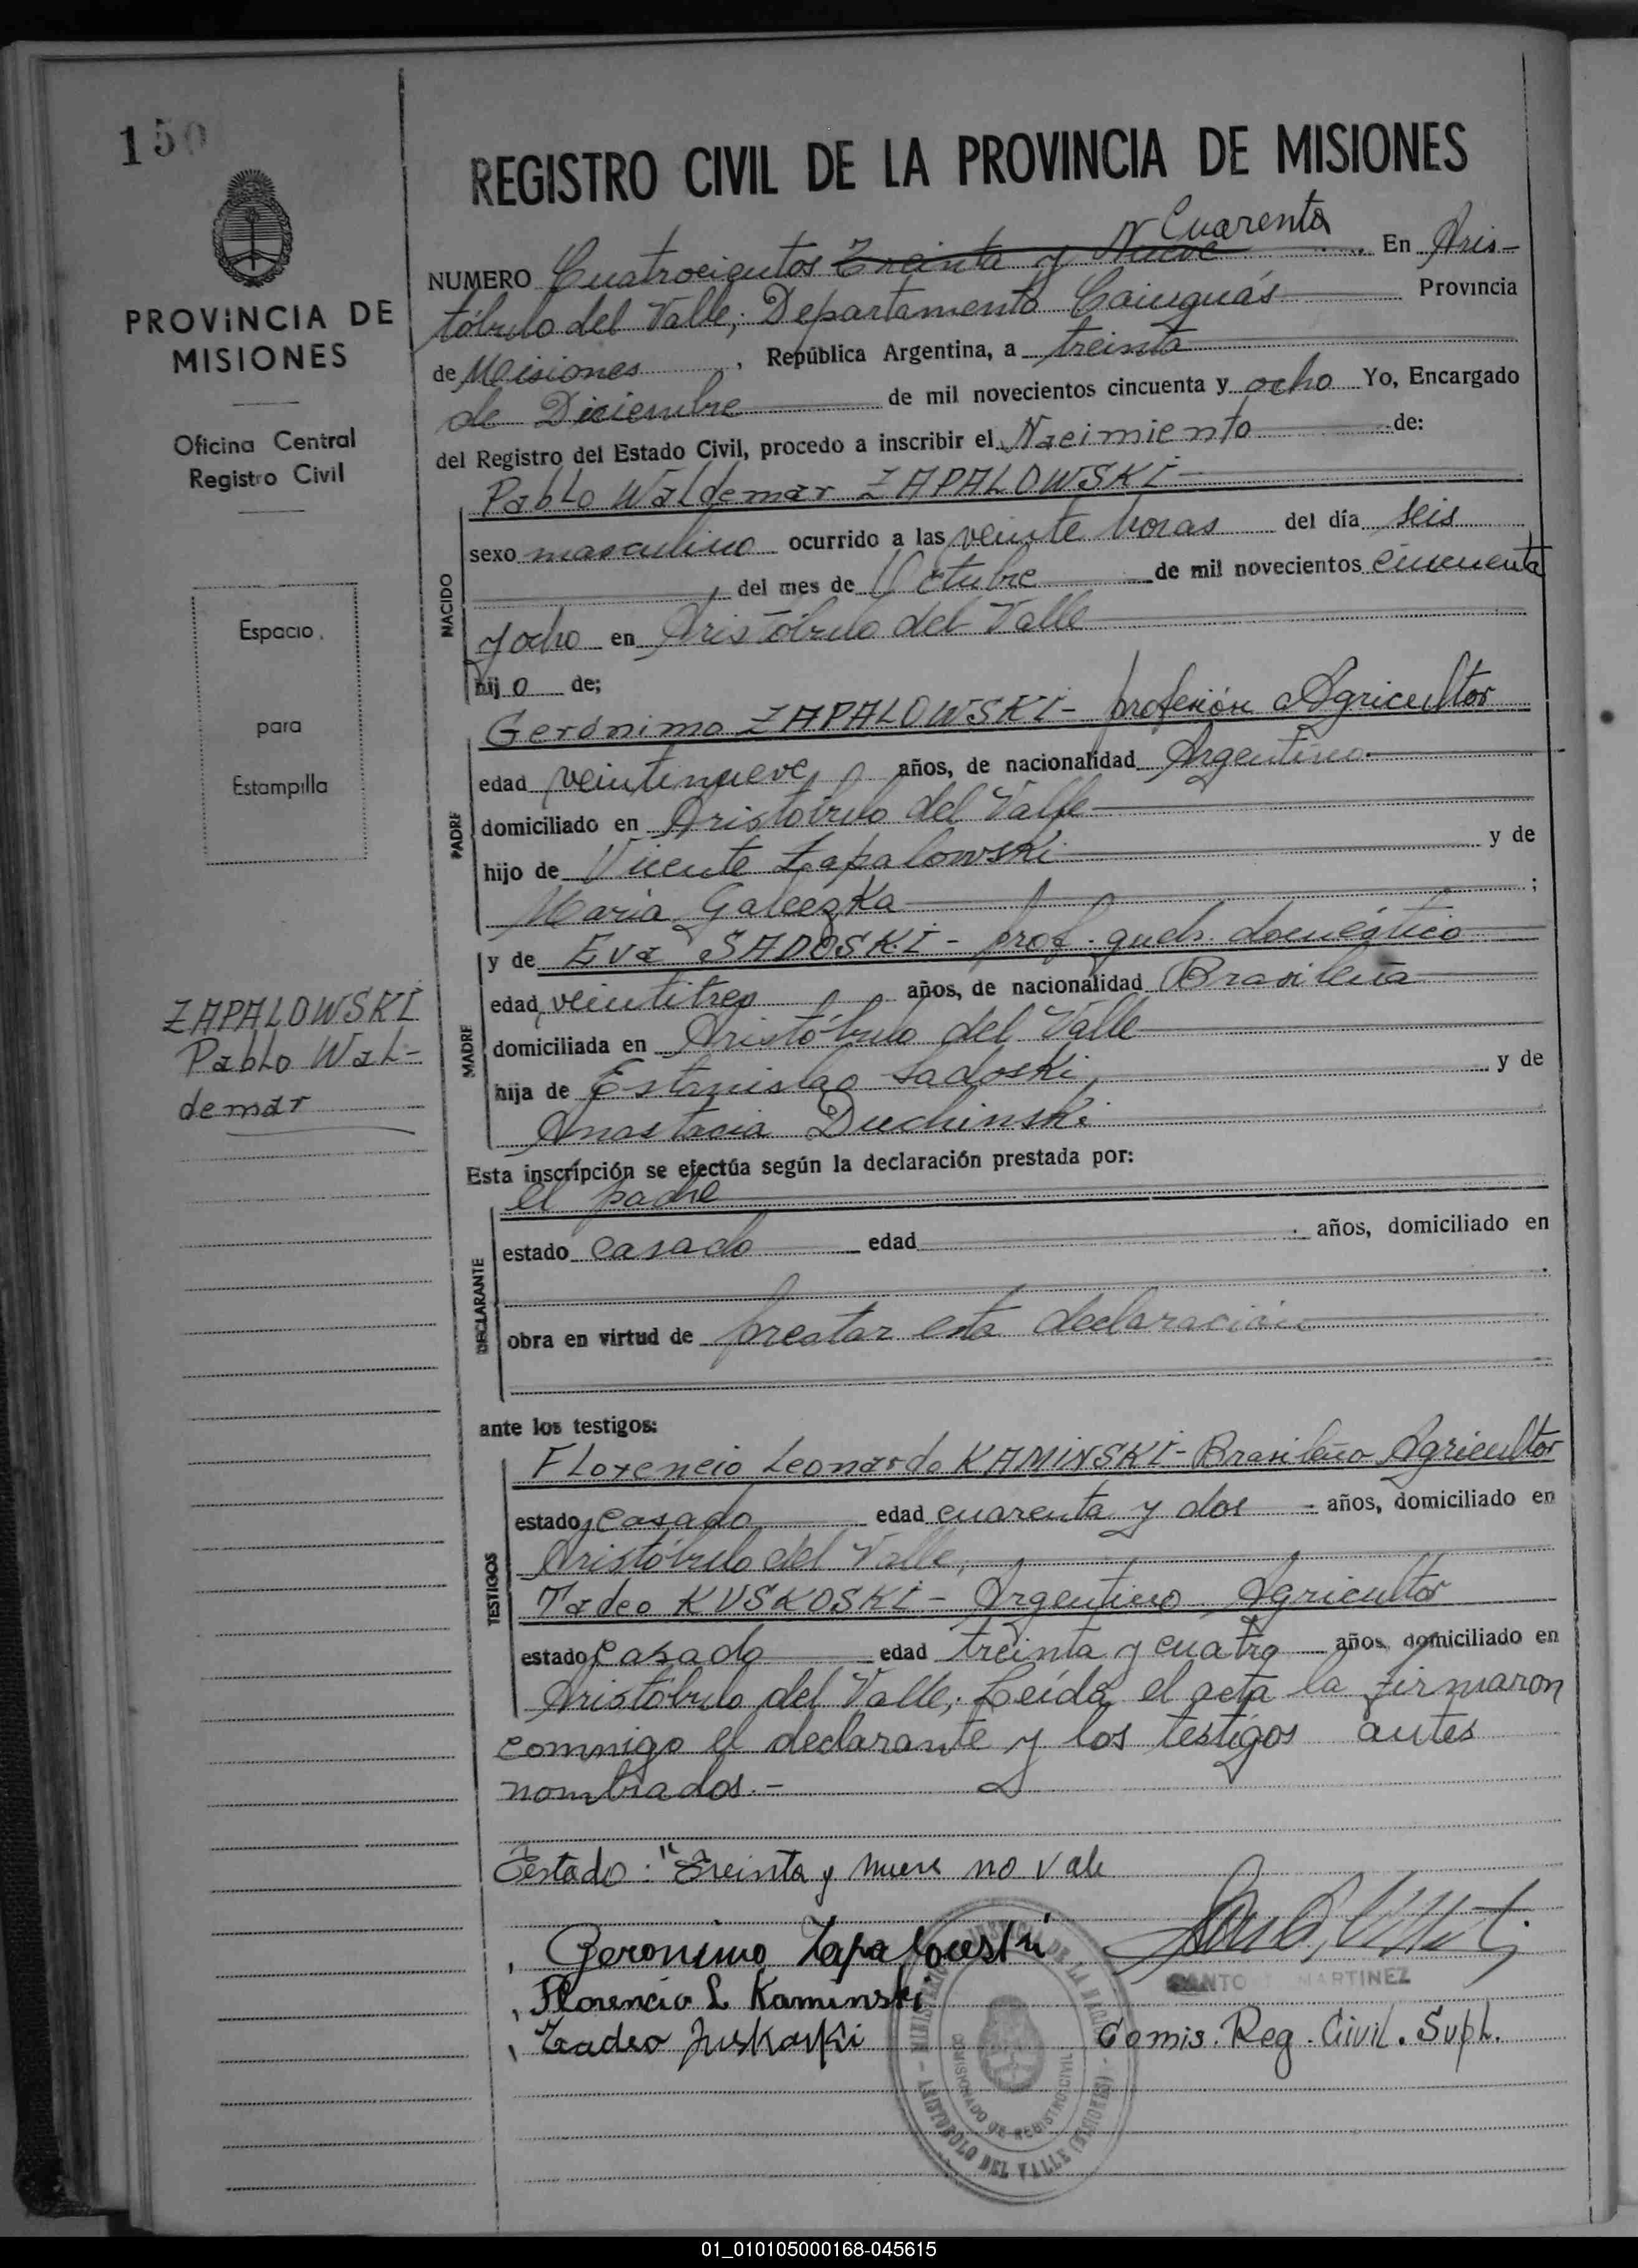 150
REGISTRO CIVIL DE LA PROVINCIA DE MISIONES
PROVINCIA DE
MISIONES
Oficina Central
Registro Civil
Espacio
para
Estampilla
ZAPALOWSKI
Pablo Wal-
demar
Cuarenta
NUMERO Cuatrocientos Treinta y Nueve En Aris-
tóbulo del Valle, Departamento Cainguás Provincia
de Misiones, República Argentina, a treinta
de Diciembre de mil novecientos cincuenta y ocho Yo, Encargado
del Registro del Estado Civil, procedo a inscribir el Nacimiento de:
Pablo Waldemar ZAPALOWSKI-
NACIDO
sexo masculino ocurrido a las veinte horas del día seis
, del mes de Octubre de mil novecientos cincuenta
y ocho en Aristóbulo del Valle
hijo de;
Gerónimo ZAPALOWSKI- profesión Agricultor
PADRE
edad veintinueve años, de nacionalidad Argentino
domiciliado en Aristóbulo del Valle
hijo de Vicente Zapalowski y de
Maria Galeezka ;
y de Eva SADOSKI- prof. queh. doméstico
MADRE
edad veintitres años, de nacionalidad Brasileña
domiciliada en Aristóbulo del Valle
hija de Estanislao Sadoski y de
Anastacia Duchinski
Esta inscripción se efectúa según la declaración prestada por:
el padre
DECLARANTE
estado casado edad años, domiciliado en
obra en virtud de prestar esta declaración
ante los testigos:
Florencio Leonardo KAMINSKI- Brasileño Agricultor
TESTIGOS
estado casado edad cuarenta y dos años, domiciliado en
Aristóbulo del Valle,
Tadeo KUSKOSKI- Argentino Agricultor
estado casado edad treinta y cuatro años, domiciliado en
Aristóbulo del Valle; Leída el acta la firmaron
commigo el declarante y los testigos antes
nombrados.-
Testado: "Treinta y nueve no vale
Geronimo Zapalowski
Florencio L Kaminski
Tadeo Juskoski
SANTO MARTINEZ
Comis. Reg. Civil. Supl.
MINISTERIO DE LA NACION
COMISIONADO DE REGISTRO CIVIL
ARISTOBULO DEL VALLE (MISIONES)
01_010105000168-045615